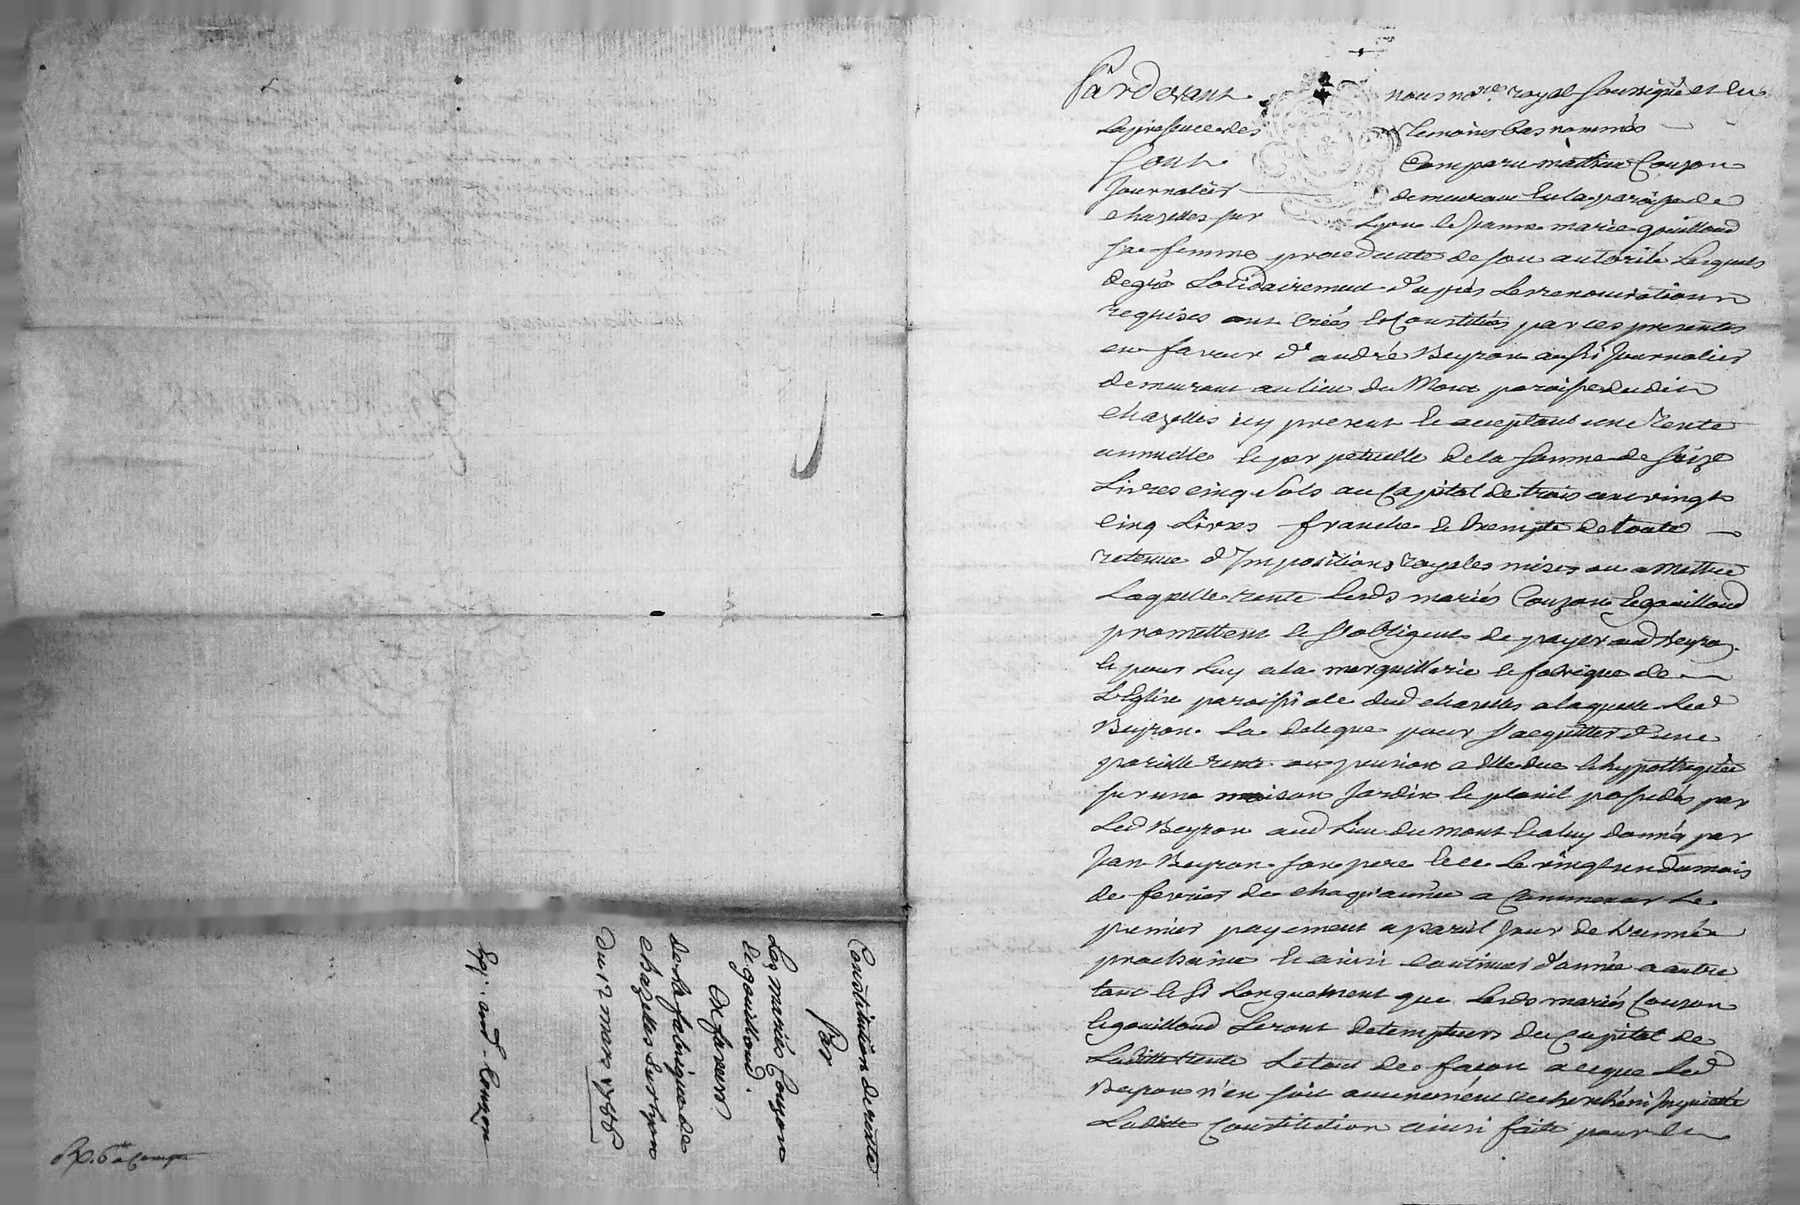 Constitution de rente
Par
Les mariés Couzon
et gouilloud.
En faveur
de la fabrique de
chazelles sur Lyon
Du 12 mars 1786
Exp. aud. Couzon
Pardevant nous no.re royal soussigné et en
la presence des temoins bas nommés
Sont Comparu mathieu Couzon
Journalier demeurant en la paroisse de
chazelles sur Lyon et Jeanne marie gouilloud
sa femme procedante de son autorité Lesquels
de gré Solidairement d'après les renonciations
requises ont créés et Constitués par ces presentes
en faveur d'andré Beyron aussi Journalier
demeurant au lieu du Mont paroisse dudit
chazelles icy present et acceptant une Rente
annuelle et perpetuelle de la somme de seize
Livres cinq sols au Capital de trois cent vingt
cinq Livres franche et Exempte de toute
retenue d'Impositions royales mises ou a Mettre
Laquelle rente lesds mariés Couzon et gouilloud
promettent et s'obligent de payer aud Beyron
et pour luy a la marguillerie et fabrique de
L'Eglise paroissiale dud chazelles a laquelle Led
Beyron La delegue pour s'acquitter d'une
pareille rente ou pension a Elle due et hypothequée
sur une maison Jardin et plassil possedés par
Led Beyron aud Lieu du mont et a luy donnés par
Jean Beyron son pere et ce le vingt un du mois
de fevrier de chaqu'année a Commencer le
premier payement a pareil Jour de L'année
prochaine et ainsi Continuer d'année a autre
tant et si Longuement que Lesds mariés Couzon
et gouilloud seront detempteurs du Capital de
Laditte rente Le tout de façon a ce que Led
Beyron n'en soit aucunement recherché ni Inquieté
Laditte Constitution ainsi faite pour et